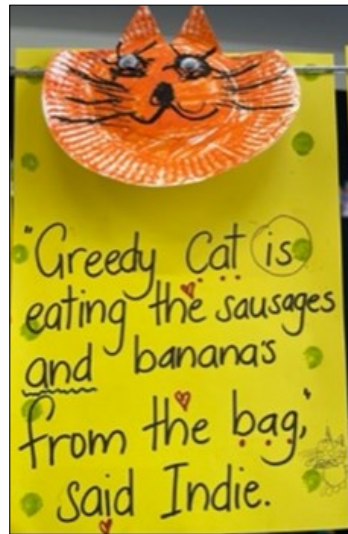 "Greedy Cat is
eating the sausages
and banana's
from the bag,"
said Indie.